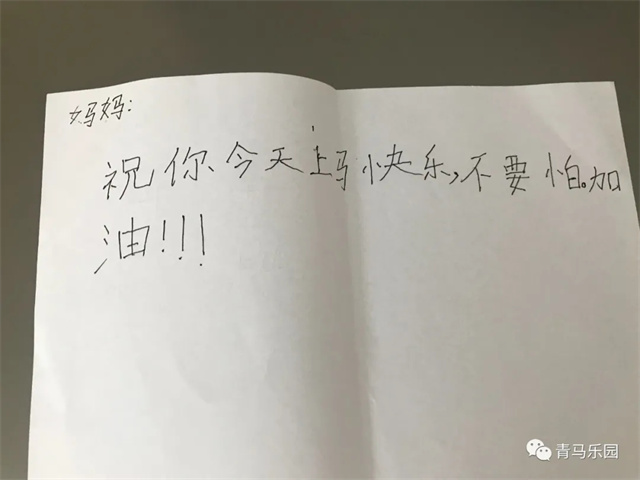 妈妈:
祝你今天上马快乐,不要怕。加
油!!!
青马乐园